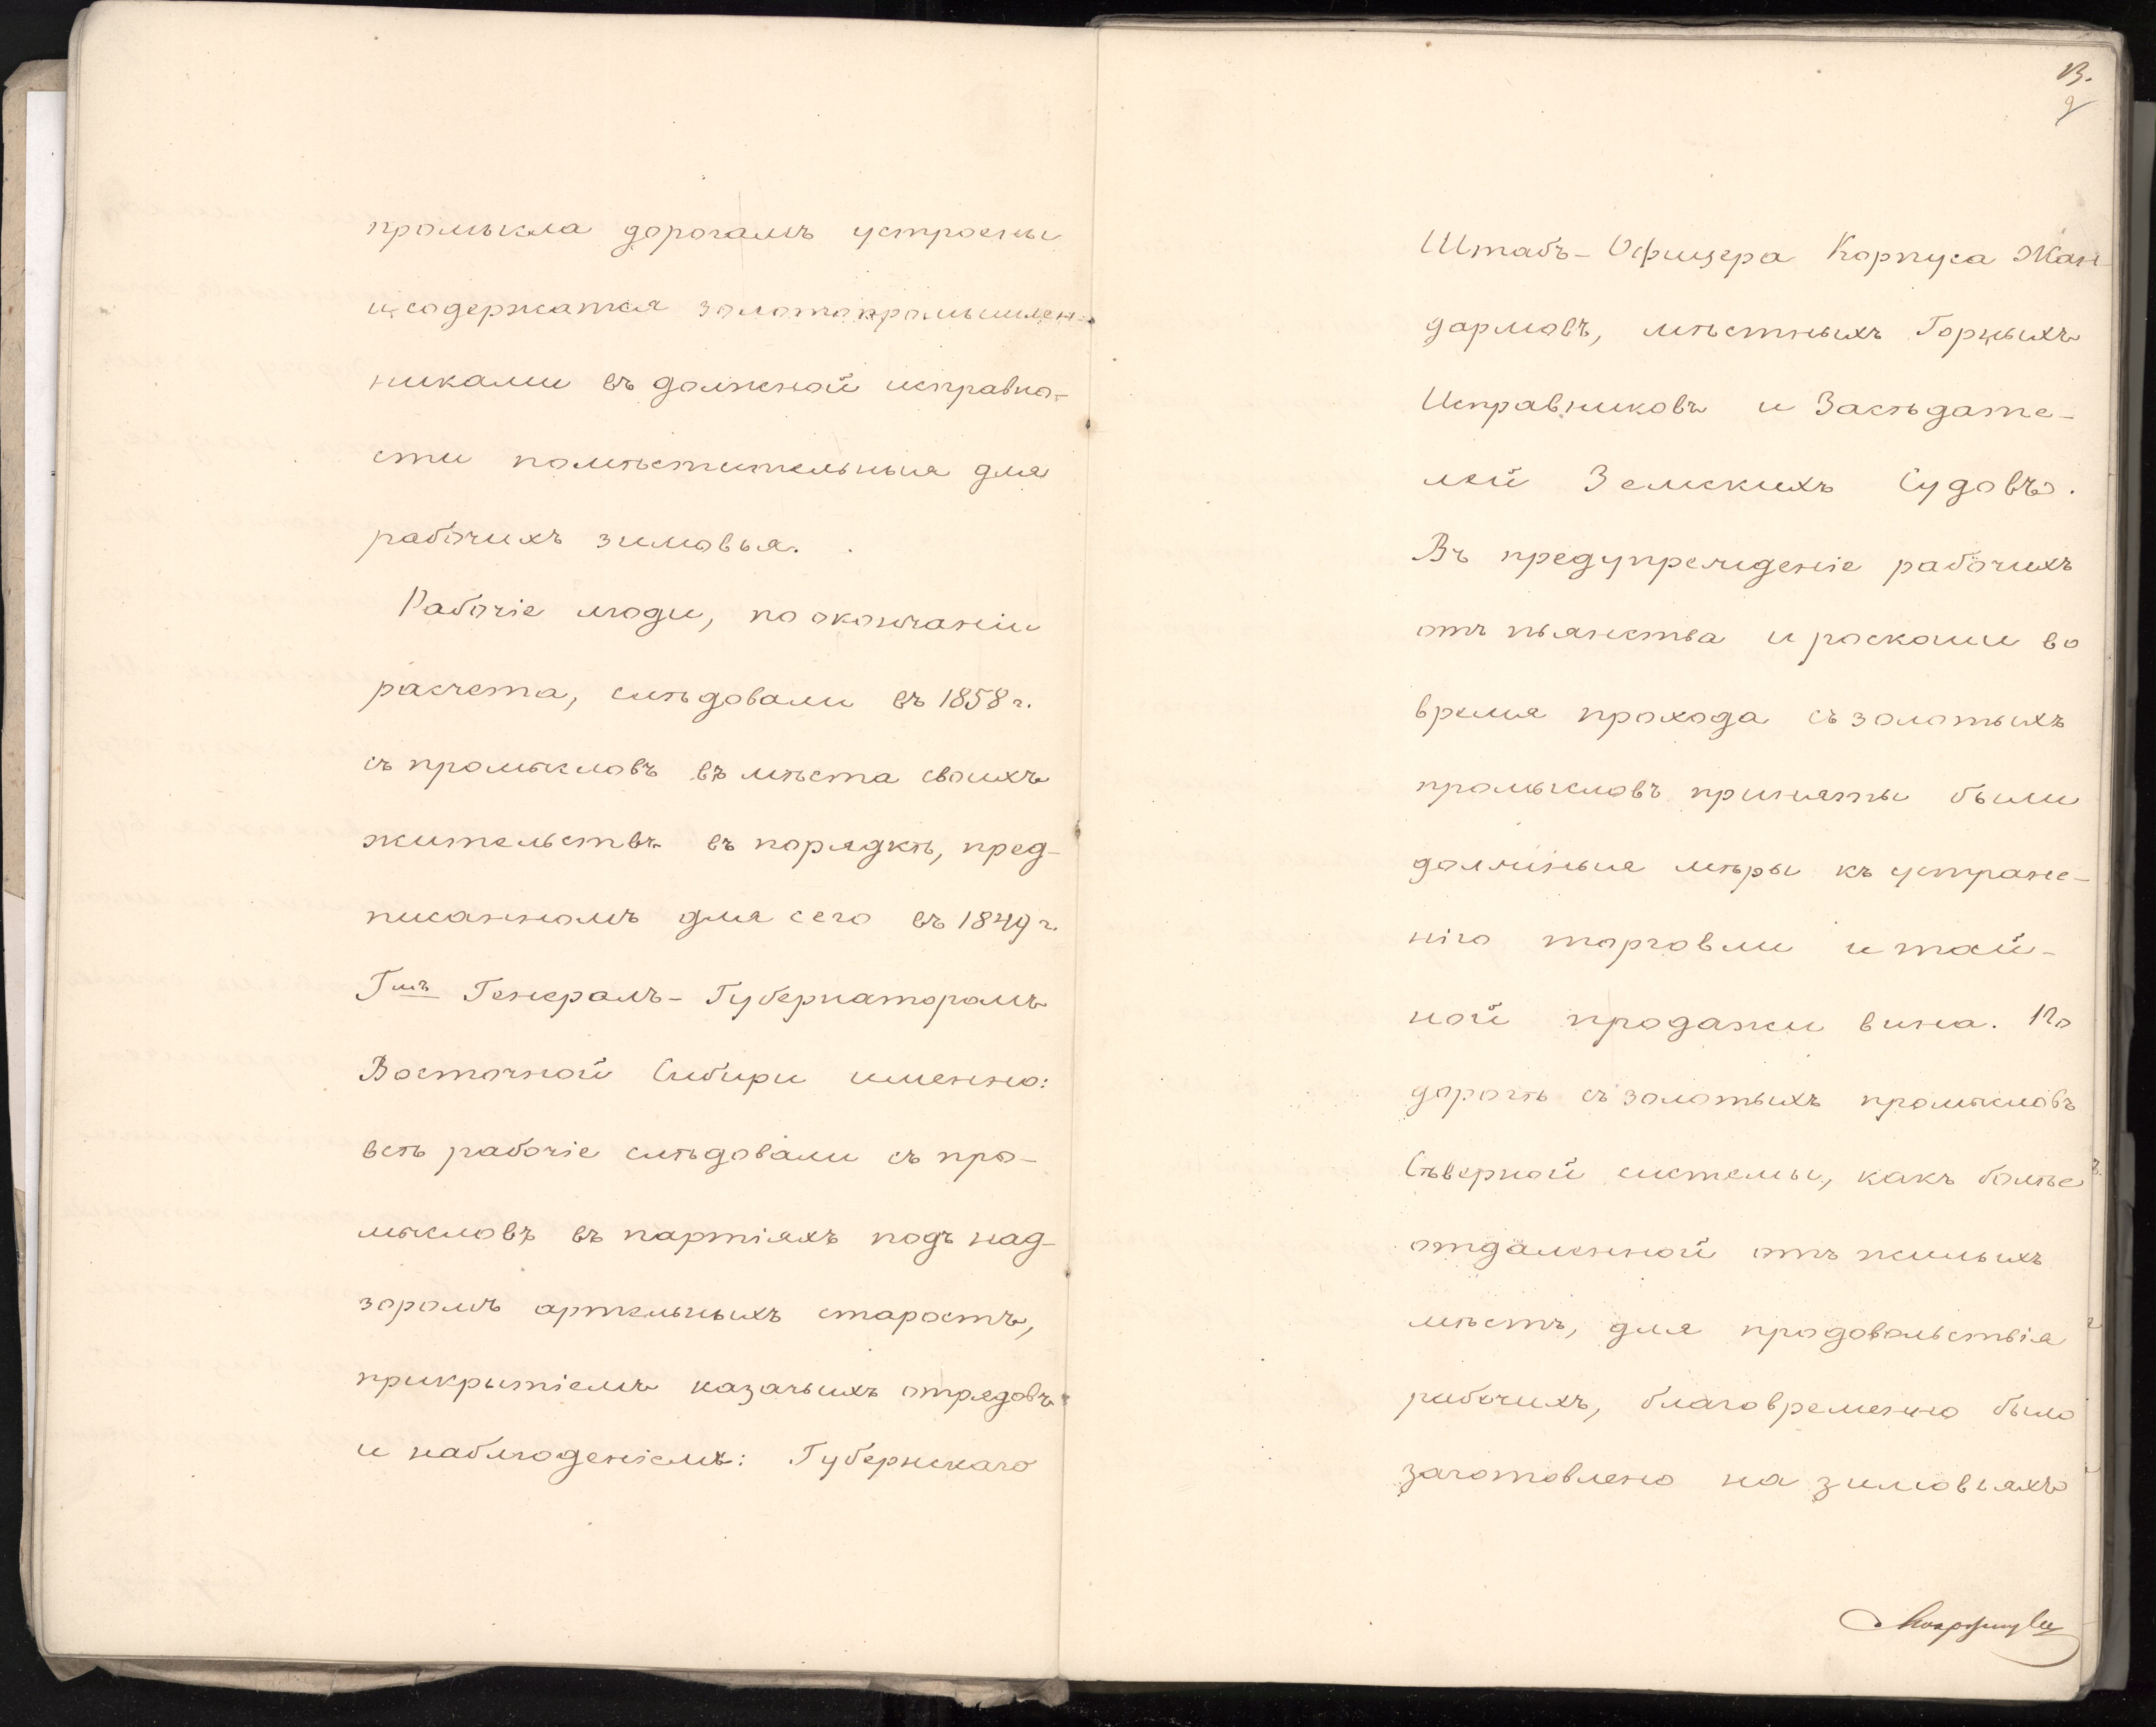 промысла дорогамъ устроены
и содержатся золотопромышлен-
никами въ должной исправно-
сти помѣстительныя для
рабочихъ зимовья.
Рабочіе люди, по окончаніи
расчета, слѣдовали въ 1858 г.
съ промысловъ въ мѣста своихъ
жительствъ въ порядкѣ, пред-
писанномъ для сего въ 1849 г.
Гмъ Генералъ-Губернаторомъ
Восточной Сибири именно:
всѣ рабочіе слѣдовали съ про-
мысловъ въ партіяхъ подъ над-
зоромъ артельныхъ старостъ,
прикрытіемъ казачьихъ отрядовъ
и наблюденіемъ: Губернскаго
13.
Штабъ-Офицера Корпуса Жан-
дармовъ, мѣстныхъ Горныхъ
Исправниковъ и Засѣдате-
лей Земскихъ Судовъ.
Въ предупрежденіе рабочихъ
отъ пьянства и роскоши во
время прохода съ золотыхъ
промысловъ приняты были
должныя мѣры къ устране-
нію торговли и тай-
ной продажи вина. По
дорогѣ съ золотыхъ промысловъ
Сѣверной системы, какъ болѣе
отдаленной отъ жилыхъ
мѣстъ, для продовольствія
рабочихъ, благовременно было
заготовлено на зимовьяхъ